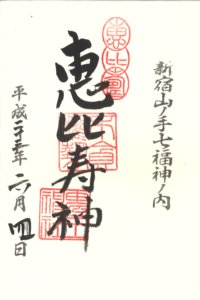 新宿山ノ手七福神ノ内
恵比寿
恵比寿神
平成二十三年六月四日